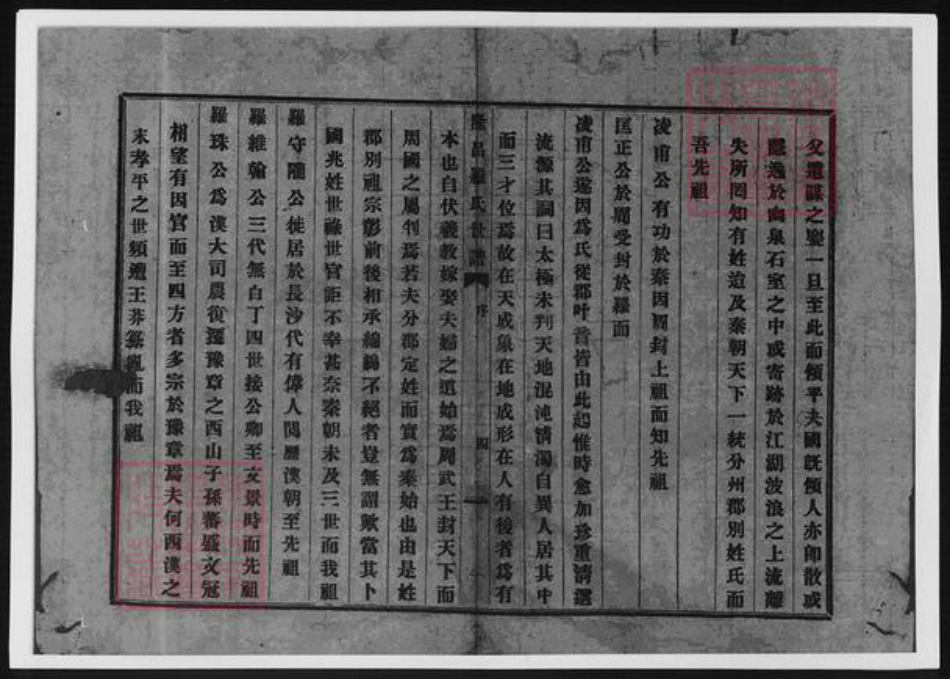 父遺諜之鑒一旦至此而傾乎夫國旣傾人亦卽散或
隱逸於幽泉石室之中或寄跡於江湖波浪之上流離
失所罔知有姓迨及秦朝天下一統分州郡別姓氏而
吾先祖
凌甫公有功於秦因罰封上祖而知先祖
匡正公於周受封於羅而
凌甫公遂因爲氏從郡叶音皆由此起惟時愈加珍重淸選
流源其詞曰太極未判天地混沌淸濁自異人居其中
而三才位焉故在天成象在地成形在人有後者爲有
隆昌羅氏世譜 序 四
本也自伏羲敎嫁娶夫婦之道始焉周武王封天下而
周國之屬刋焉若夫分郡定姓而實爲秦始也由是姓
郡別祖宗彰前後相承綿綿不絕者豈無謂歟當其卜
國兆姓世祿世官詎不幸甚奈秦朝未及三世而我祖
羅守隴公徙居於長沙代有偉人閱歷漢朝至先祖
羅維翰公三代無白丁四世接公卿至文景時而先祖
羅珠公爲漢大司農復遷豫章之西山子孫蕃盛文冠
相望有因官而至四方者多宗於豫章焉夫何西漢之
末孝平之世頻遭王莽篡亂而我祖